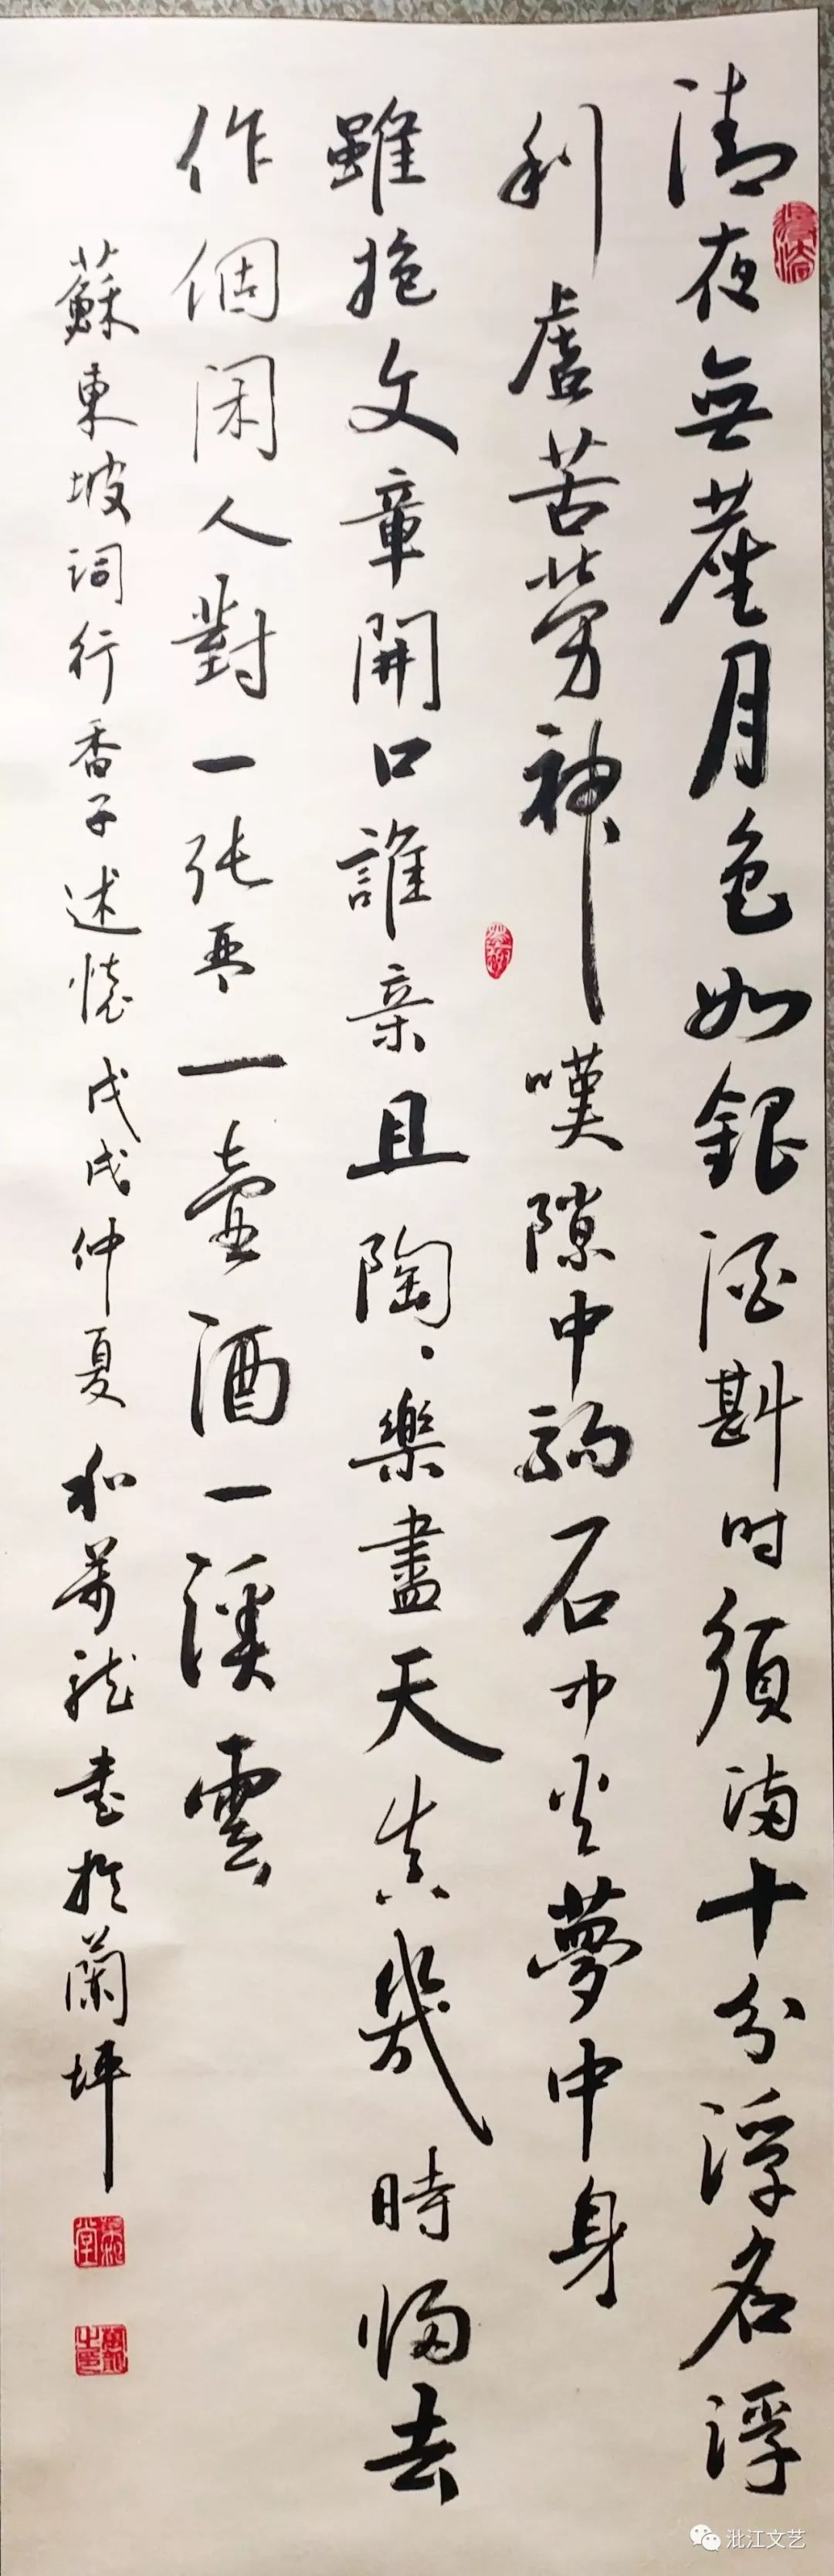 清夜無塵月色如銀酒斟时須满十分浮名浮
利虛苦勞神嘆隙中駒石中火夢中身
雖抱文章開口誰亲且陶、樂盡天真幾時歸去
作個闲人對一张琴一壺酒一溪雲
蘇東坡词行香子述懷戊戌仲夏和萬龙書於蘭坪
沘江文艺